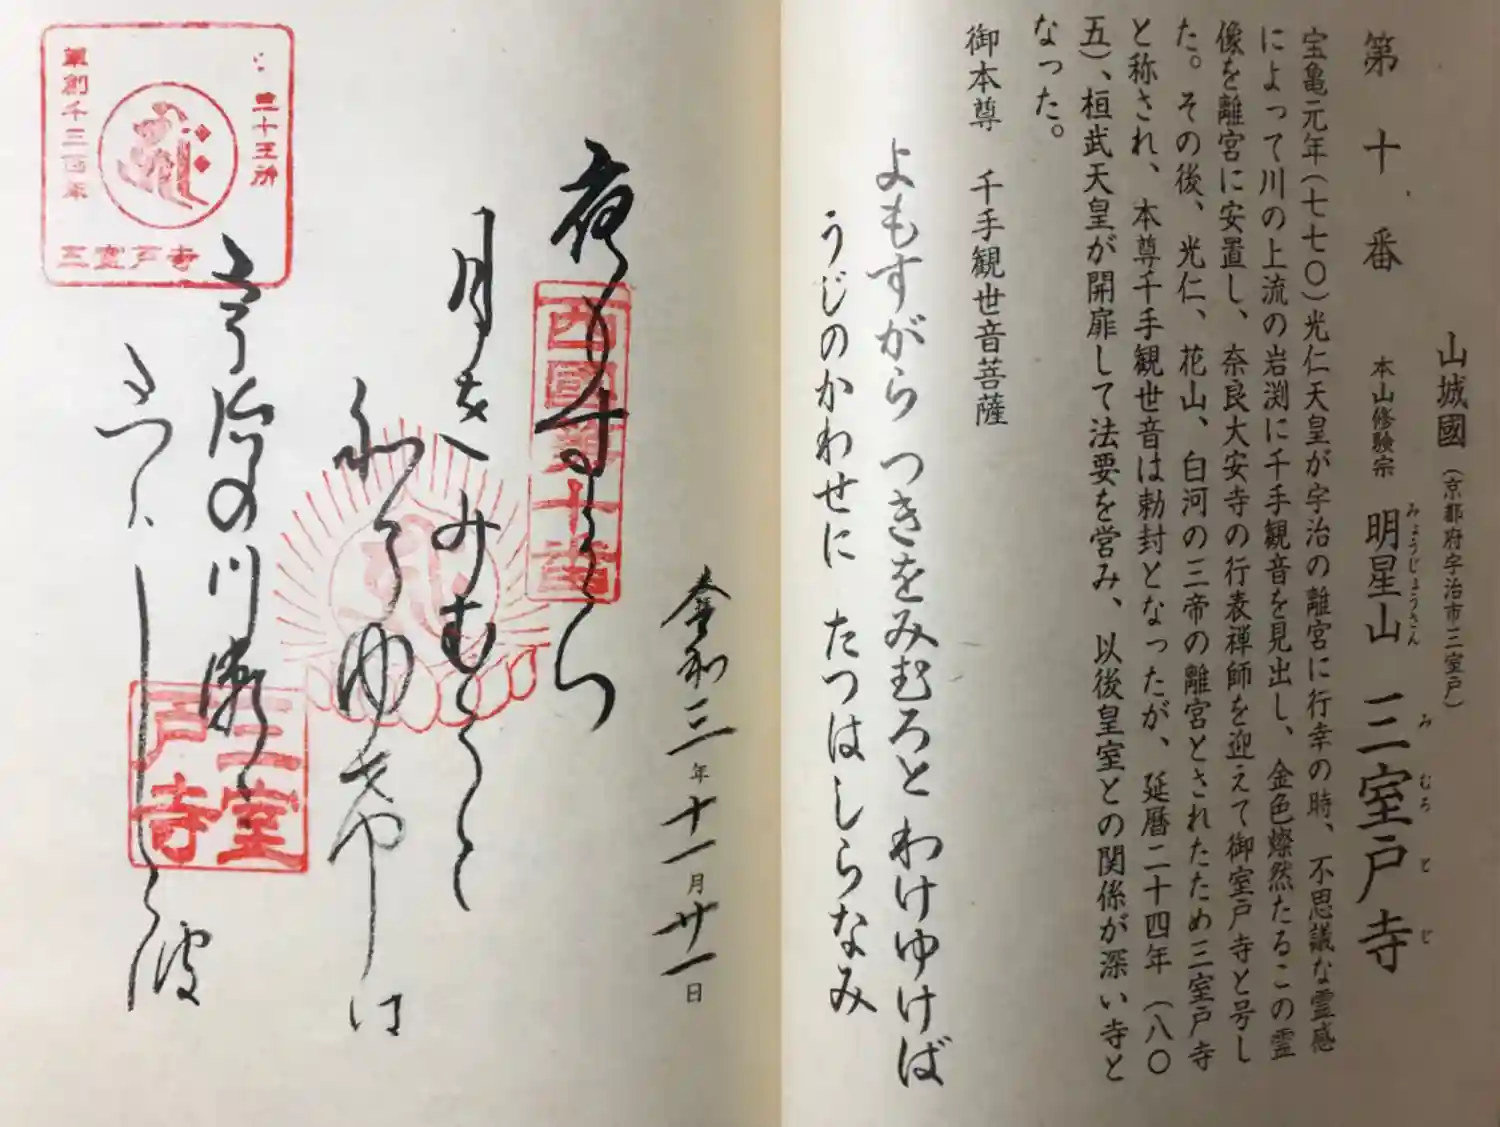 山城國（京都府宇治市三室戸）
第十番　本山修験宗　明星山　三室戸寺
みょうじょうさん　みむろとじ
宝亀元年（七七〇）光仁天皇が宇治の離宮に行幸の時、不思議な霊感
によって川の上流の岩渕に千手観音を見出し、金色燦然たるこの霊
像を離宮に安置し、奈良大安寺の行表禅師を迎えて御室戸寺と号し
た。その後、光仁、花山、白河の三帝の離宮とされたため三室戸寺
と称され、本尊千手観世音は勅封となったが、延暦二十四年（八〇
五）、桓武天皇が開扉して法要を営み、以後皇室との関係が深い寺と
なった。
御本尊　千手観世音菩薩
よもすがら　つきをみむろと　わけゆけば
うじのかわせに　たつはしらなみ
令和三年十一月廿一日
西國第十番
夜もすがら
月をみむろと
わけゆけば
宇治の川瀬に
たつはしら波
三室戸寺
三十三所
草創千三百年
三室戸寺